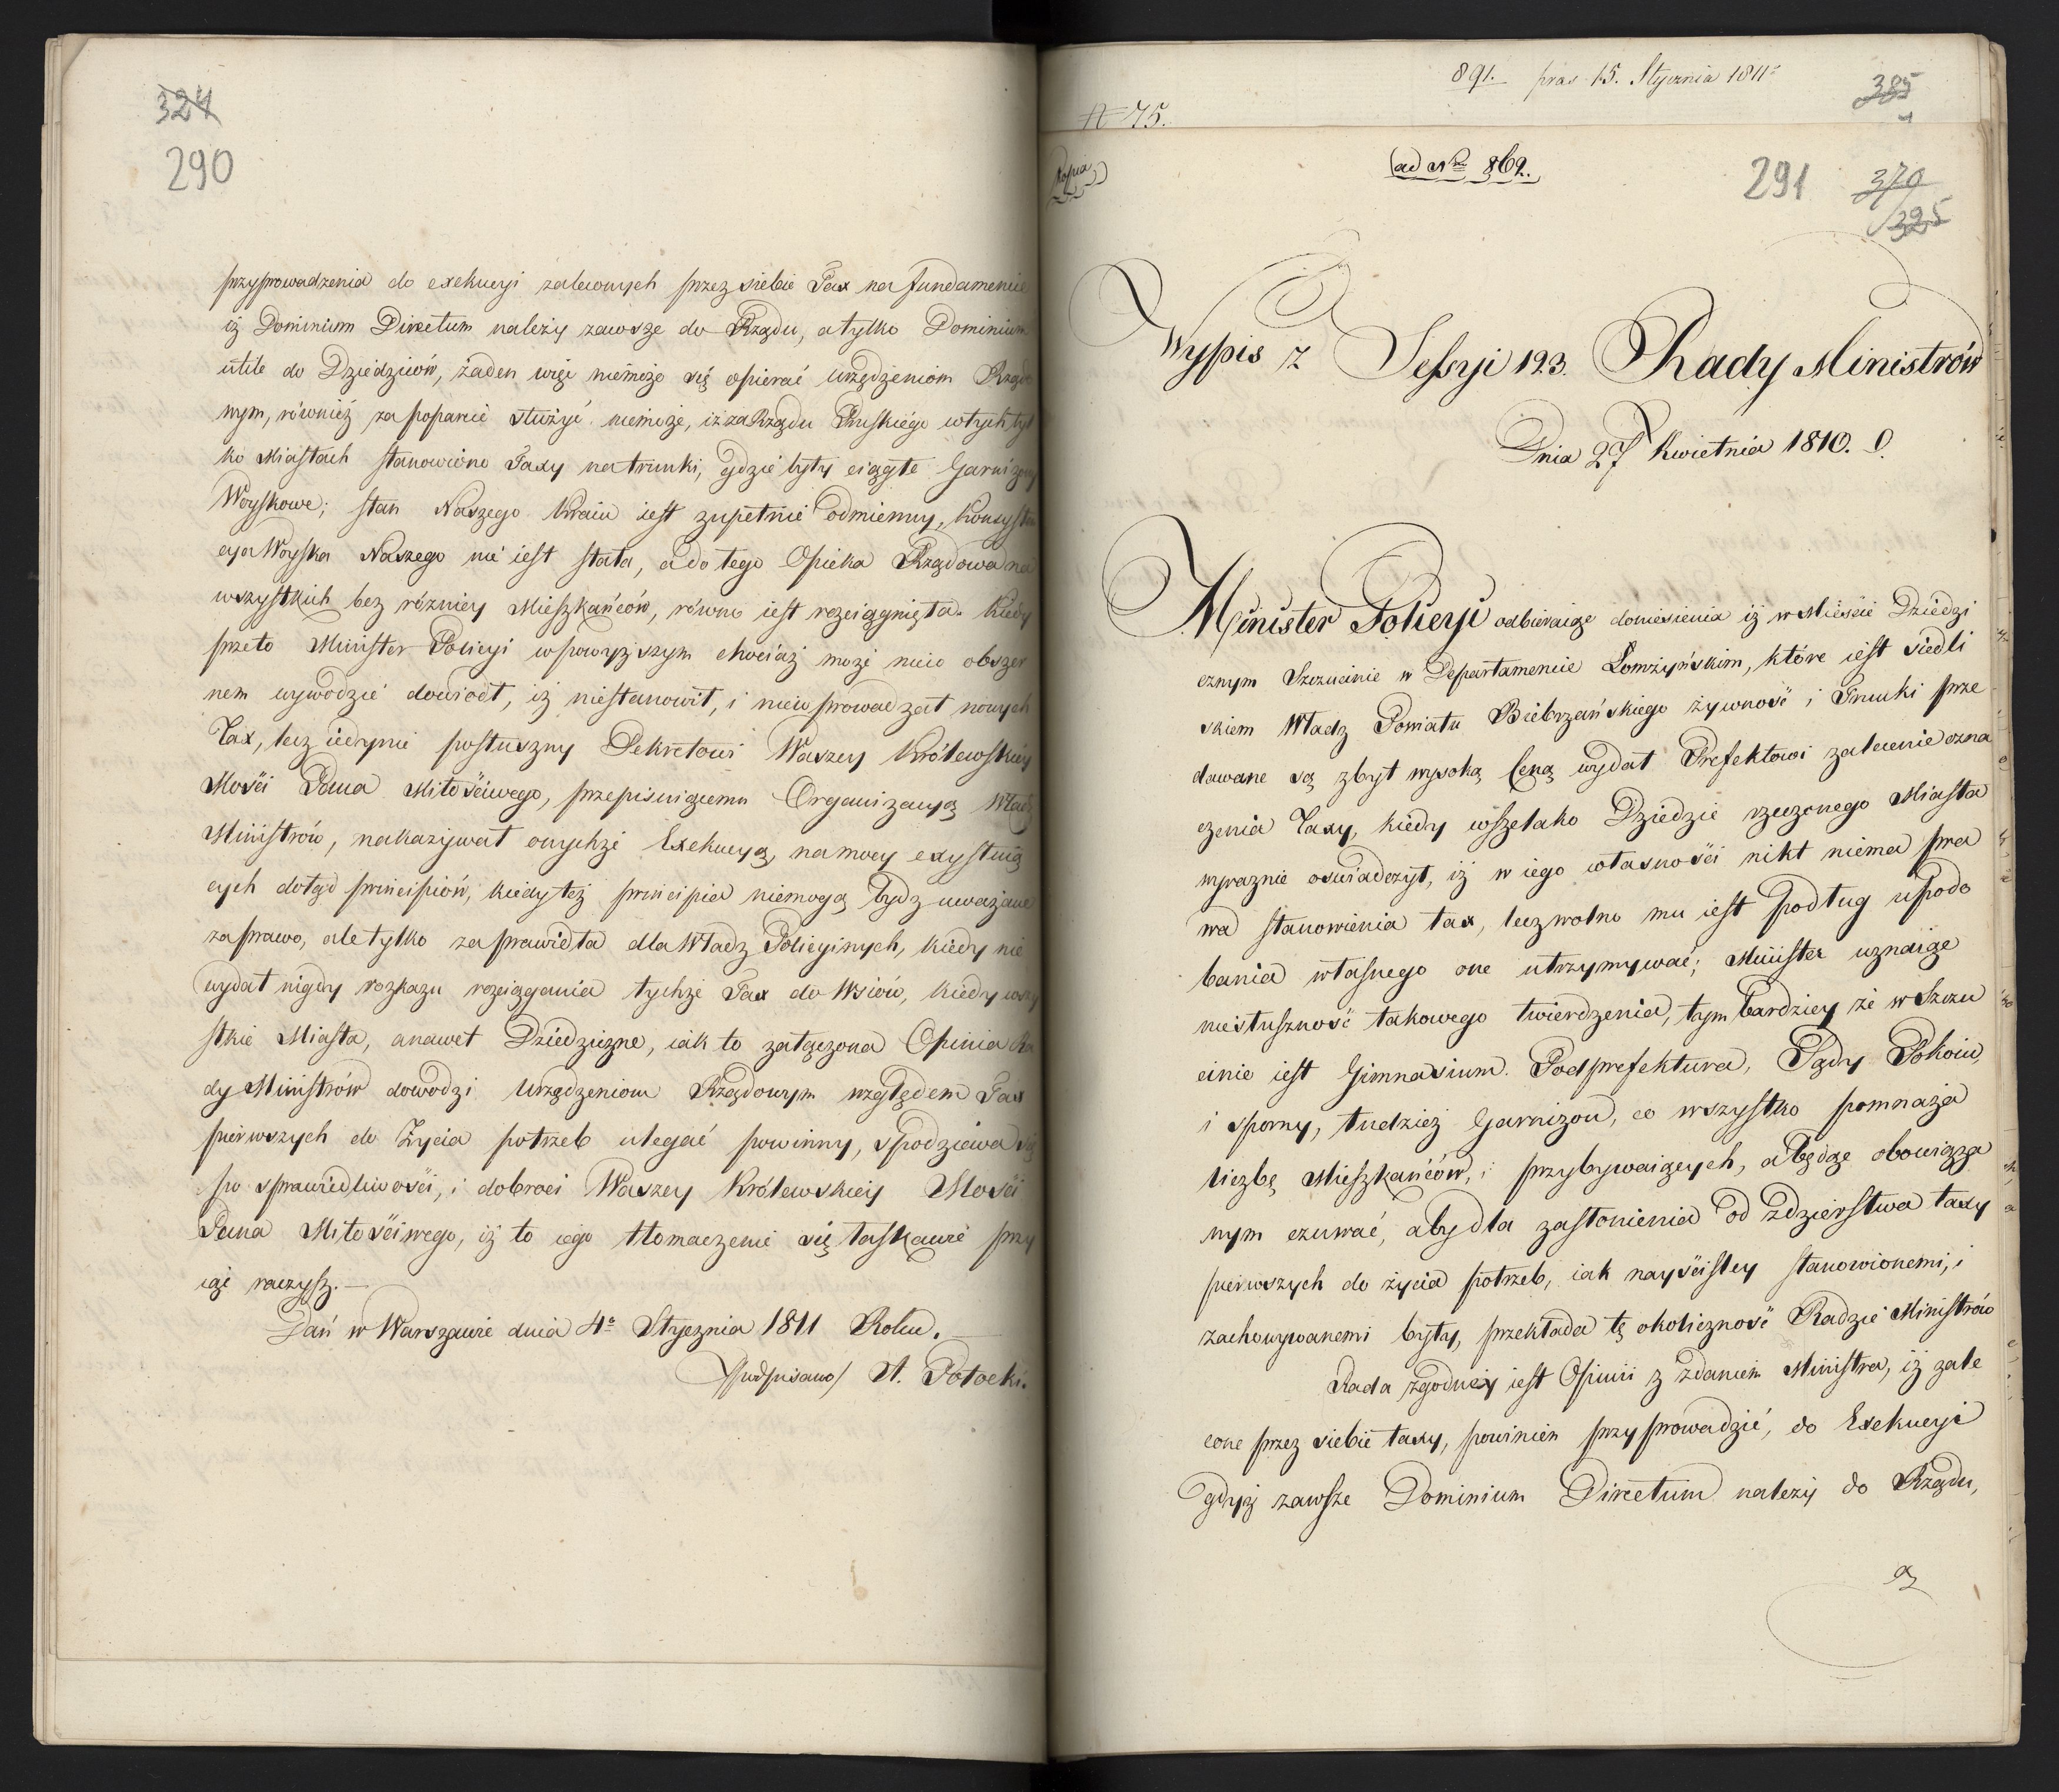 324
290
przyprowadzenia do exekucyi zaleconych przez siebie Tax na fundamencie
iż Dominium Directum należy zawsze do Rządu, a tylko Dominium
utile do Dziedziców, żaden więc niemoże się opierać urządzeniom Rządo
wym, również za poparcie służyć niemoże, iż za Rządu Pruskiego w tych tyl
ko Miastach stanowiono Taxy na trunki, gdzie były ciągłe Garnizony
Woyskowe; stan Naszego Kraiu iest zupełnie odmienny, konsysten
cya Woyska Naszego nie iest stała, a do tego Opieka Rządowa na
wszystkich bez różnicy Mieszkańców, równo iest rozciągnięta. Kiedy
przeto Minister Policyi w powyższym chociaż może nieco obszer
nem wywodzie dowiodł, iż niestanowił, i nie wprowadzał nowych
Tax, lecz iedynie posłuszny Dekretowi Waszey Królewskiey
Mości Pana Miłościwego, przepisuiącemu Organizacyą Władz
Ministrów, nakazywał onychże Exekucyą, na mocy exystuią
cych dotąd principiów, kiedy też principia niemogą bydz uważane
za prawo, ale tylko za prawidła dla Władz Policyinych, kiedy nie
wydał nigdy rozkazu rozciągania tychże Tax do Wsiów, kiedy wszy
stkie Miasta, a nawet Dziedziczne, iak to załączona Opinia Ra
dy Ministrów dowodzi Urządzeniom Rządowym względem Tax
pierwszych do Życia potrzeb ulegać powinny, spodziewa się
po sprawiedliwości, i dobroci Waszey Królewskiey Mości
Pana Miłościwego, iż to iego tłomaczenie się łaskawie przy
iąć raczysz.—
Dań w Warszawie dnia 4o Stycznia 1811 Roku.—
/podpisano/ A. Potocki.
891. pras 15. Stycznia 1811o
385
N 75.
Kopia
(ad Nrm 862.
291
370
325
Wypis z Sessyi 123. Rady Ministrów
Dnia 27 Kwietnia 1810.
Minister Policyi odbieraiąc doniesienia iż w Mieście Dziedzi
cznym Szczucinie w Departamencie Łomżyńskim, które iest siedli
skiem Władz Powiatu Biebrzańskiego żywność i Trunki prze
dawane są zbyt wysoką Ceną wydał Prefektowi zalecenie ozna
czenia Taxy, kiedy wszelako Dziedzic rzeczonego Miasta
wyraznie oswiadczył, iż w iego własności nikt niema pra
wa stanowienia tax, lecz wolno mu iest podług upodo
bania własnego one utrzymywać; Minister uznaiąc
niesłuszność takowego twierdzenia, tym bardziey że w Szczu
cinie iest Gimnasium. Podprefektura, Sądy Pokoiu,
i sporny, tudzież Garnizon, co wszystko pomnaża
liczbę Mieszkańców, i przybywaiących, a będąc obowiąza
nym czuwać, aby dla zasłonienia od zdzierstwa taxy
pierwszych do życia potrzeb, iak nayściśley stanowionemi, i
zachowywanemi były, przekłada tę okoliczność Radzie Ministrów
Rada zgodney iest Opinii z zdaniem Ministra, iż zale
cone przez siebie taxy, powinien przyprowadzić, do Exekucyi
gdyż zawsze Dominium Directum należy do Rządu,
a